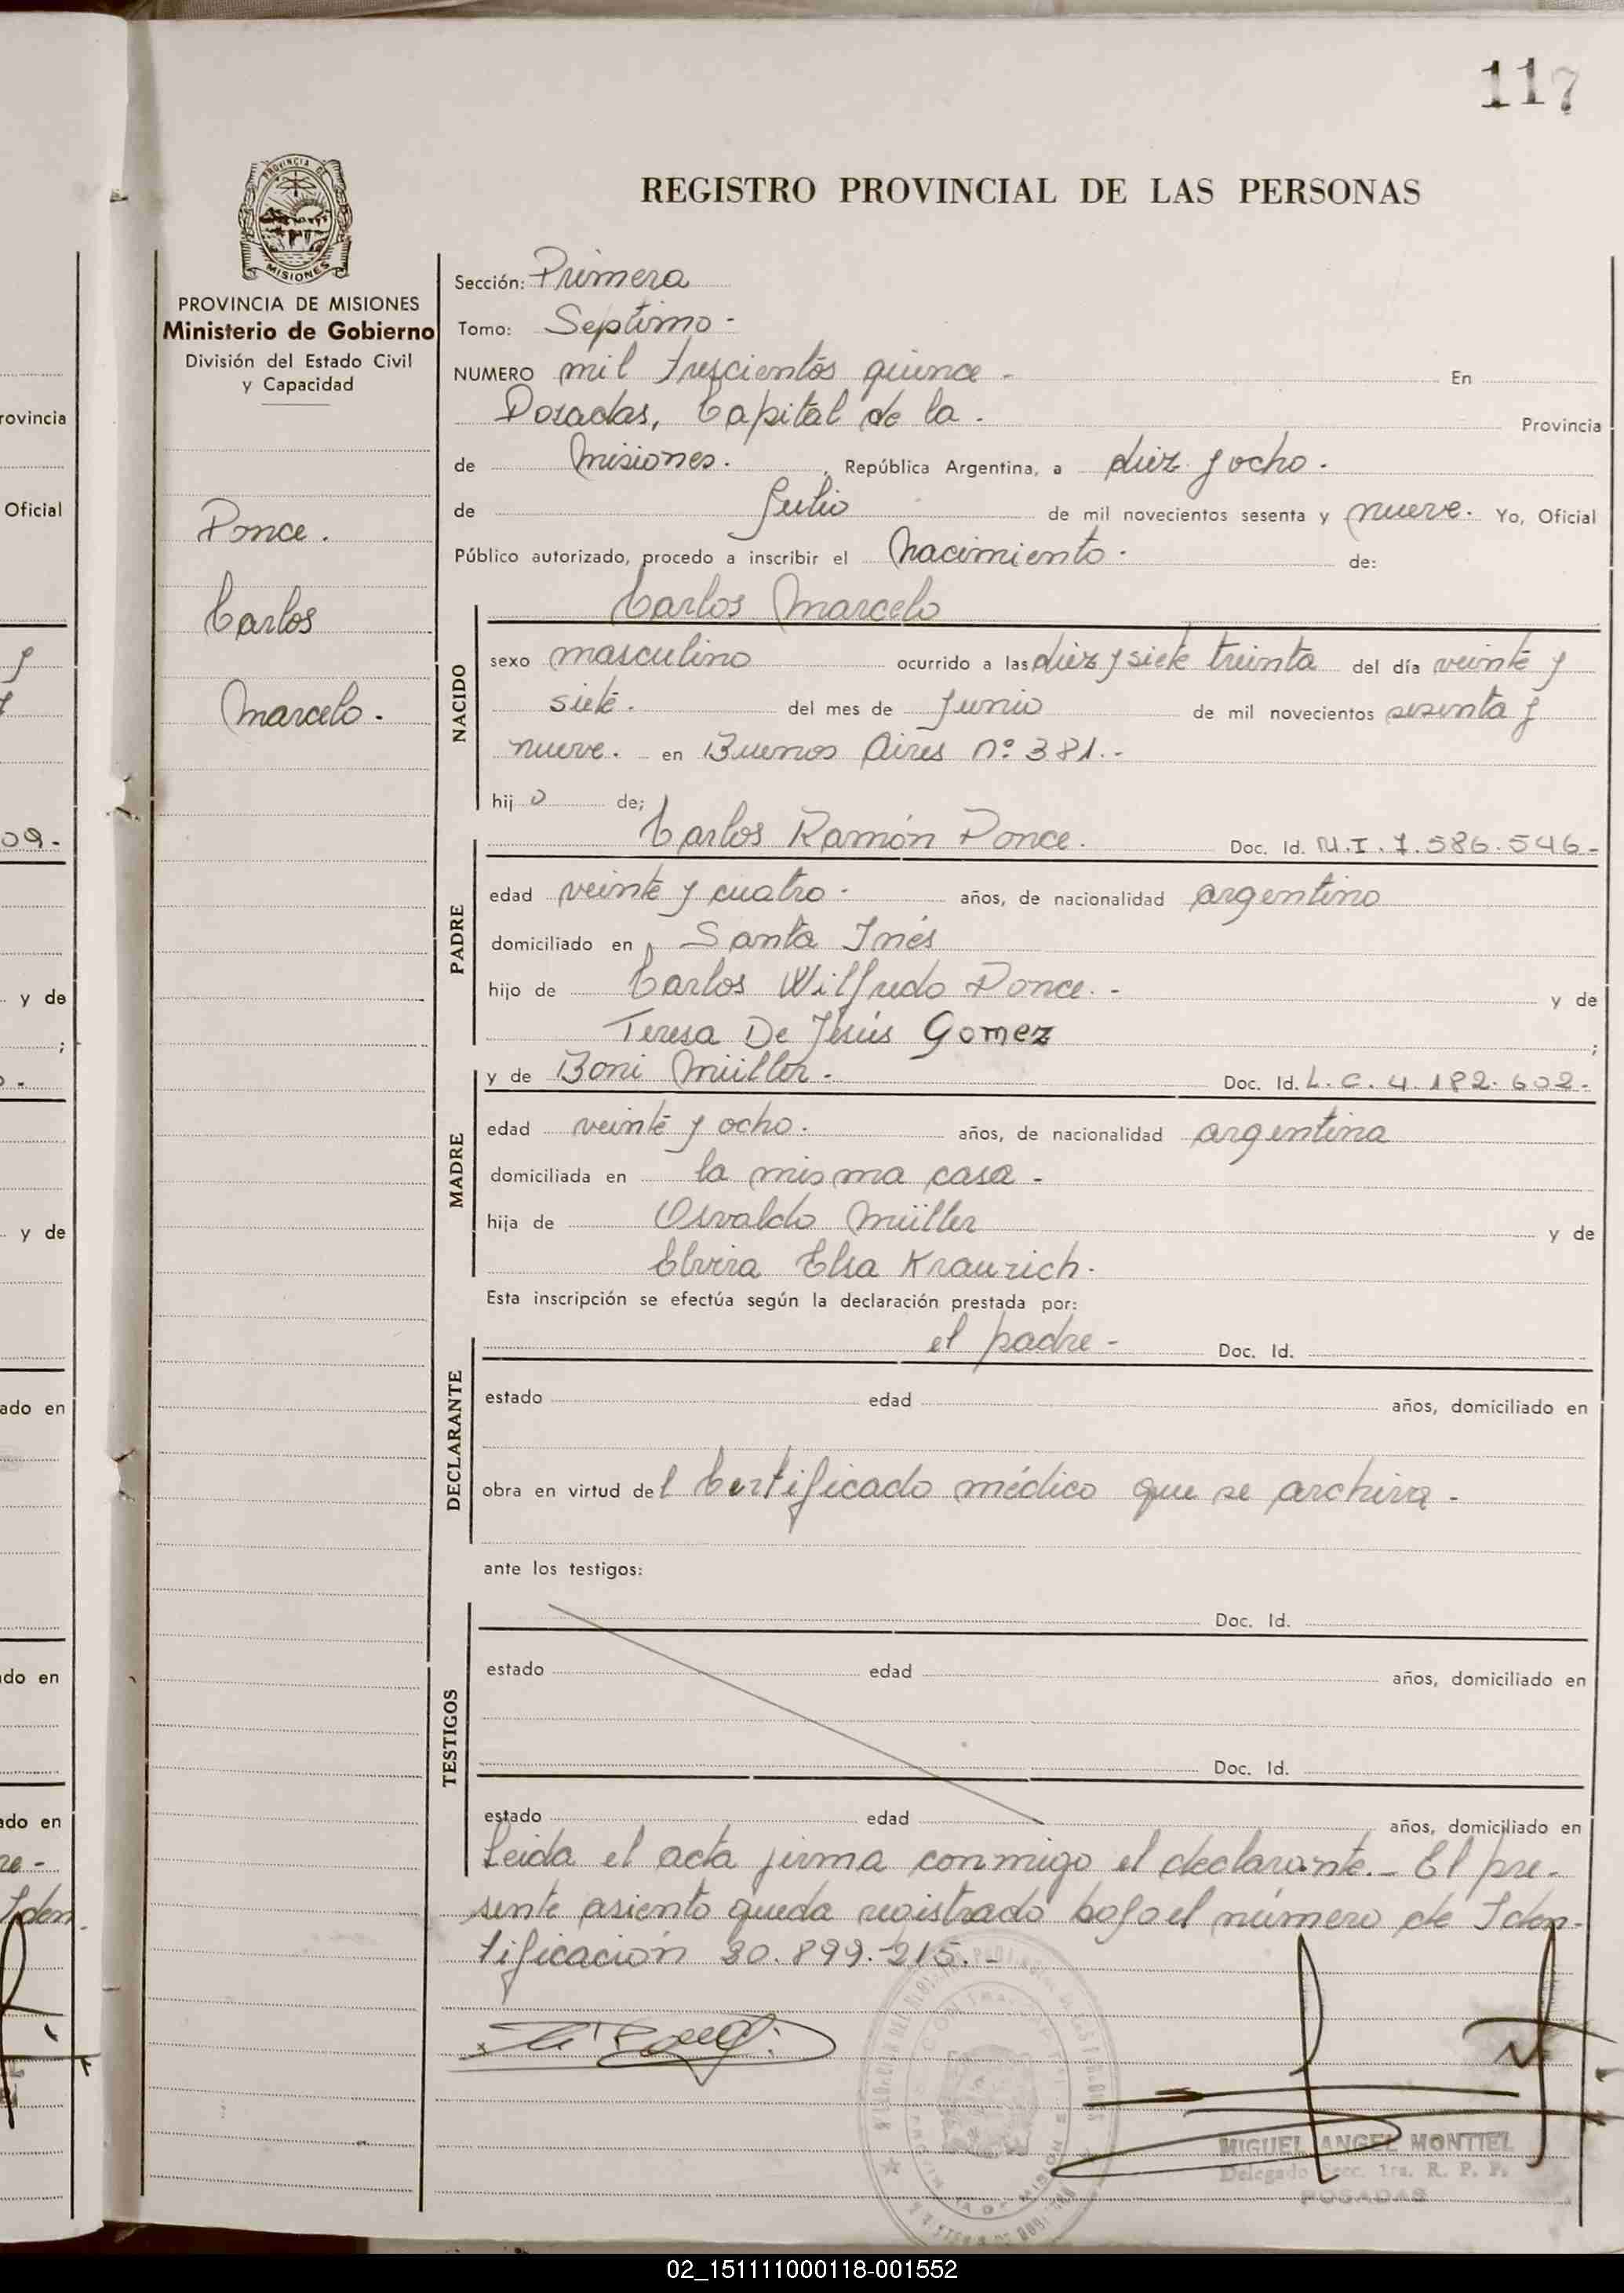 117
REGISTRO PROVINCIAL DE LAS PERSONAS
PROVINCIA DE MISIONES
Ministerio de Gobierno
División del Estado Civil
y Capacidad
Ponce.
Carlos
Marcelo.
Sección: Primera
Tomo: Septimo -
NUMERO mil trescientos quince - En
Posadas, Capital de la - Provincia
de Misiones. , República Argentina, a diez y ocho.
de Julio de mil novecientos sesenta y nueve. Yo, Oficial
Público autorizado, procedo a inscribir el Nacimiento. de:
Carlos Marcelo
NACIDO
sexo masculino ocurrido a las diez y siete treinta del día veinte y
siete. del mes de Junio de mil novecientos sesenta y
nueve. en Buenos Aires Nº 381.-
hijo de;
Carlos Ramón Ponce. Doc. Id. M.I. 7.586.546-
PADRE
edad veinte y cuatro. años, de nacionalidad argentino
domiciliado en Santa Inés
hijo de Carlos Wilfredo Ponce.- y de
Teresa De Jesús Gomez ;
y de Boni Müller. Doc. Id. L.C. 4.182.602-
MADRE
edad veinte y ocho. años, de nacionalidad argentina
domiciliada en la misma casa -
hija de Osvaldo Müller y de
Elvira Elsa Kraurich.
Esta inscripción se efectúa según la declaración prestada por:
el padre - Doc. Id.
DECLARANTE
estado edad años, domiciliado en
obra en virtud del Certificado médico que se archiva -
ante los testigos:
Doc. Id.
TESTIGOS
estado edad años, domiciliado en
Doc. Id.
estado edad años, domiciliado en
Leida el acta firma conmigo el declarante.- El pre-
sente asiento queda registrado bajo el número de Iden-
tificación 20.899.215.-
MIGUEL ANGEL MONTIEL
Delegado Secc. 1ra. R. P. P.
POSADAS
02_151111000118-001552